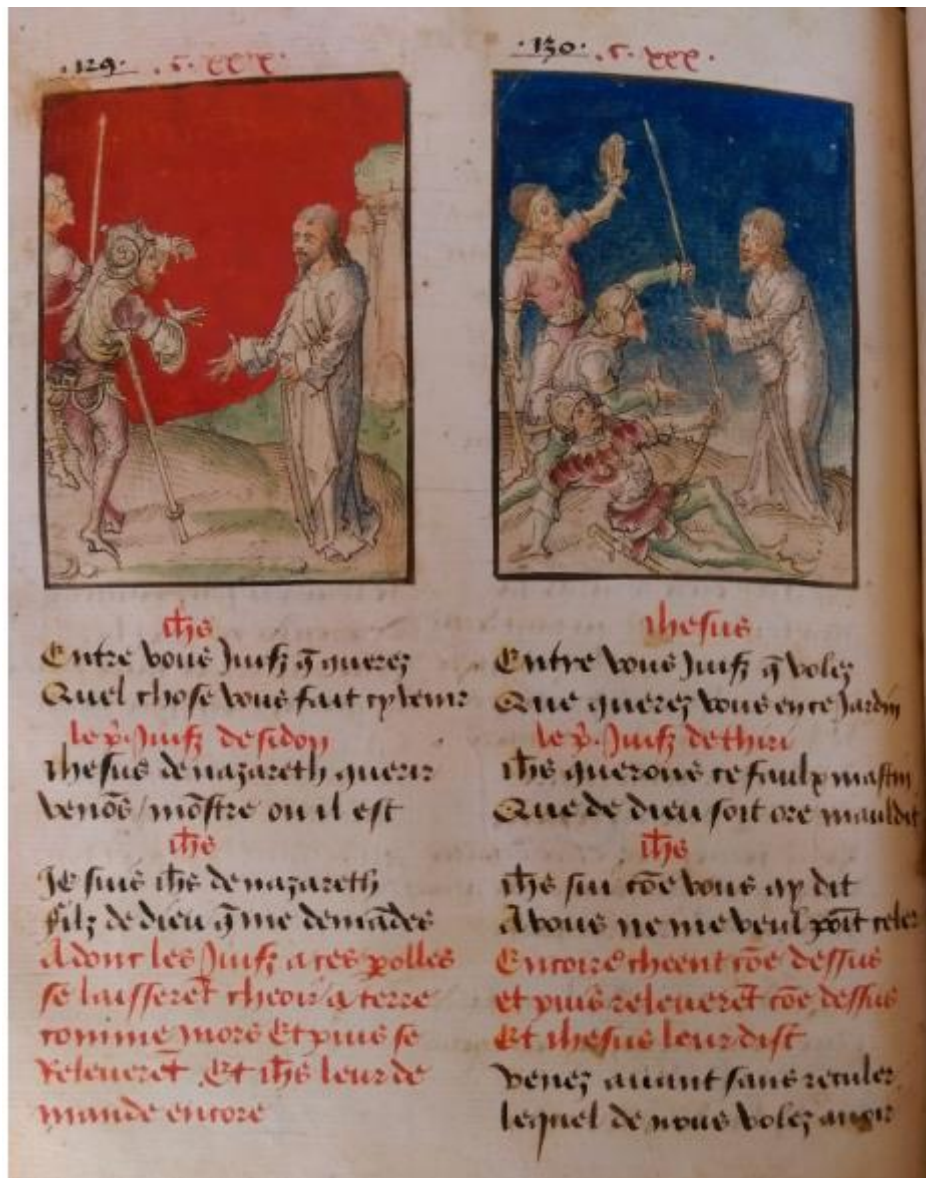 .129. .c. xxix.
ih̃s
Entre vous Juifz q̃ querez
Quel chose vous fait cy venir
le p̃. Juifz de sidon
Ihesus de nazareth querir
venõs / mõstre ou il est
ih̃s
Je suis ih̃s de nazareth
filz de dieu q̃ me demãdes
Adonc les Juifz a ces polles
se laisserẽt cheoir a terre
comme mors Et puis se
Releverẽt . Et ih̃s leur de
mande encore
.130. .c. xxx.
ihesus
Entre vous Juifz q̃ volez
Que querez vous en ce Jardin
le p̃. Juifz de thiri
ih̃s querons ce faulx mastin
Que de dieu soit ore mauldit
ih̃s
ih̃s sui cõe vous ay dit
A vous ne me veul point celer
Encoire cheent cõe dessus
et puis releverẽt cõe dessus
Et ihesus leur dist
venez avant sans reculer
lequel de nous volez